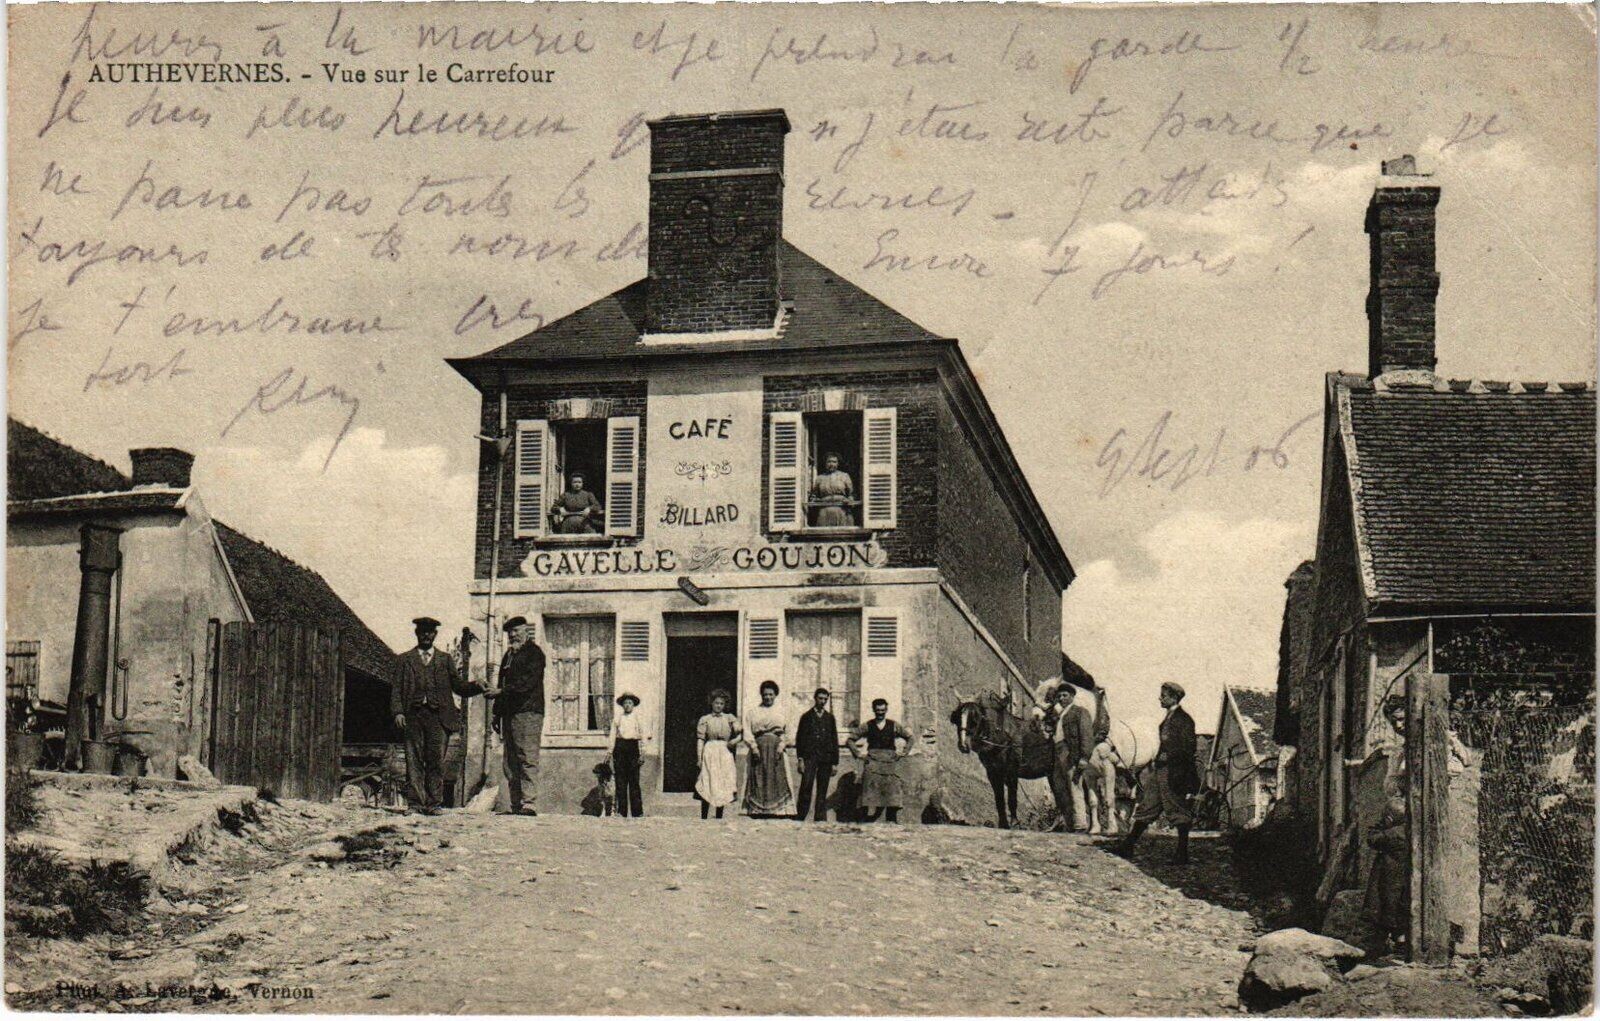 heures à la mairie et je prendrai la garde 1/2 heure
AUTHEVERNES. - Vue sur le Carrefour
Je suis plus heureux n j'étais resté parce que je
ne passe pas toutes les revues - J'attends
toujours de tes nouvelles Encore 7 jours !
Je t'embrasse très
fort
9 Sept 06
CAFÉ
BILLARD
GAVELLE GOUJON
Phot. A. Lavergne, Vernon